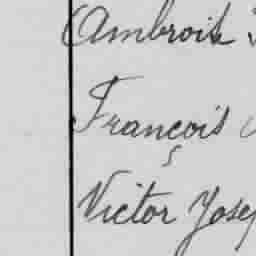 Ambroise
François
Victor Jose